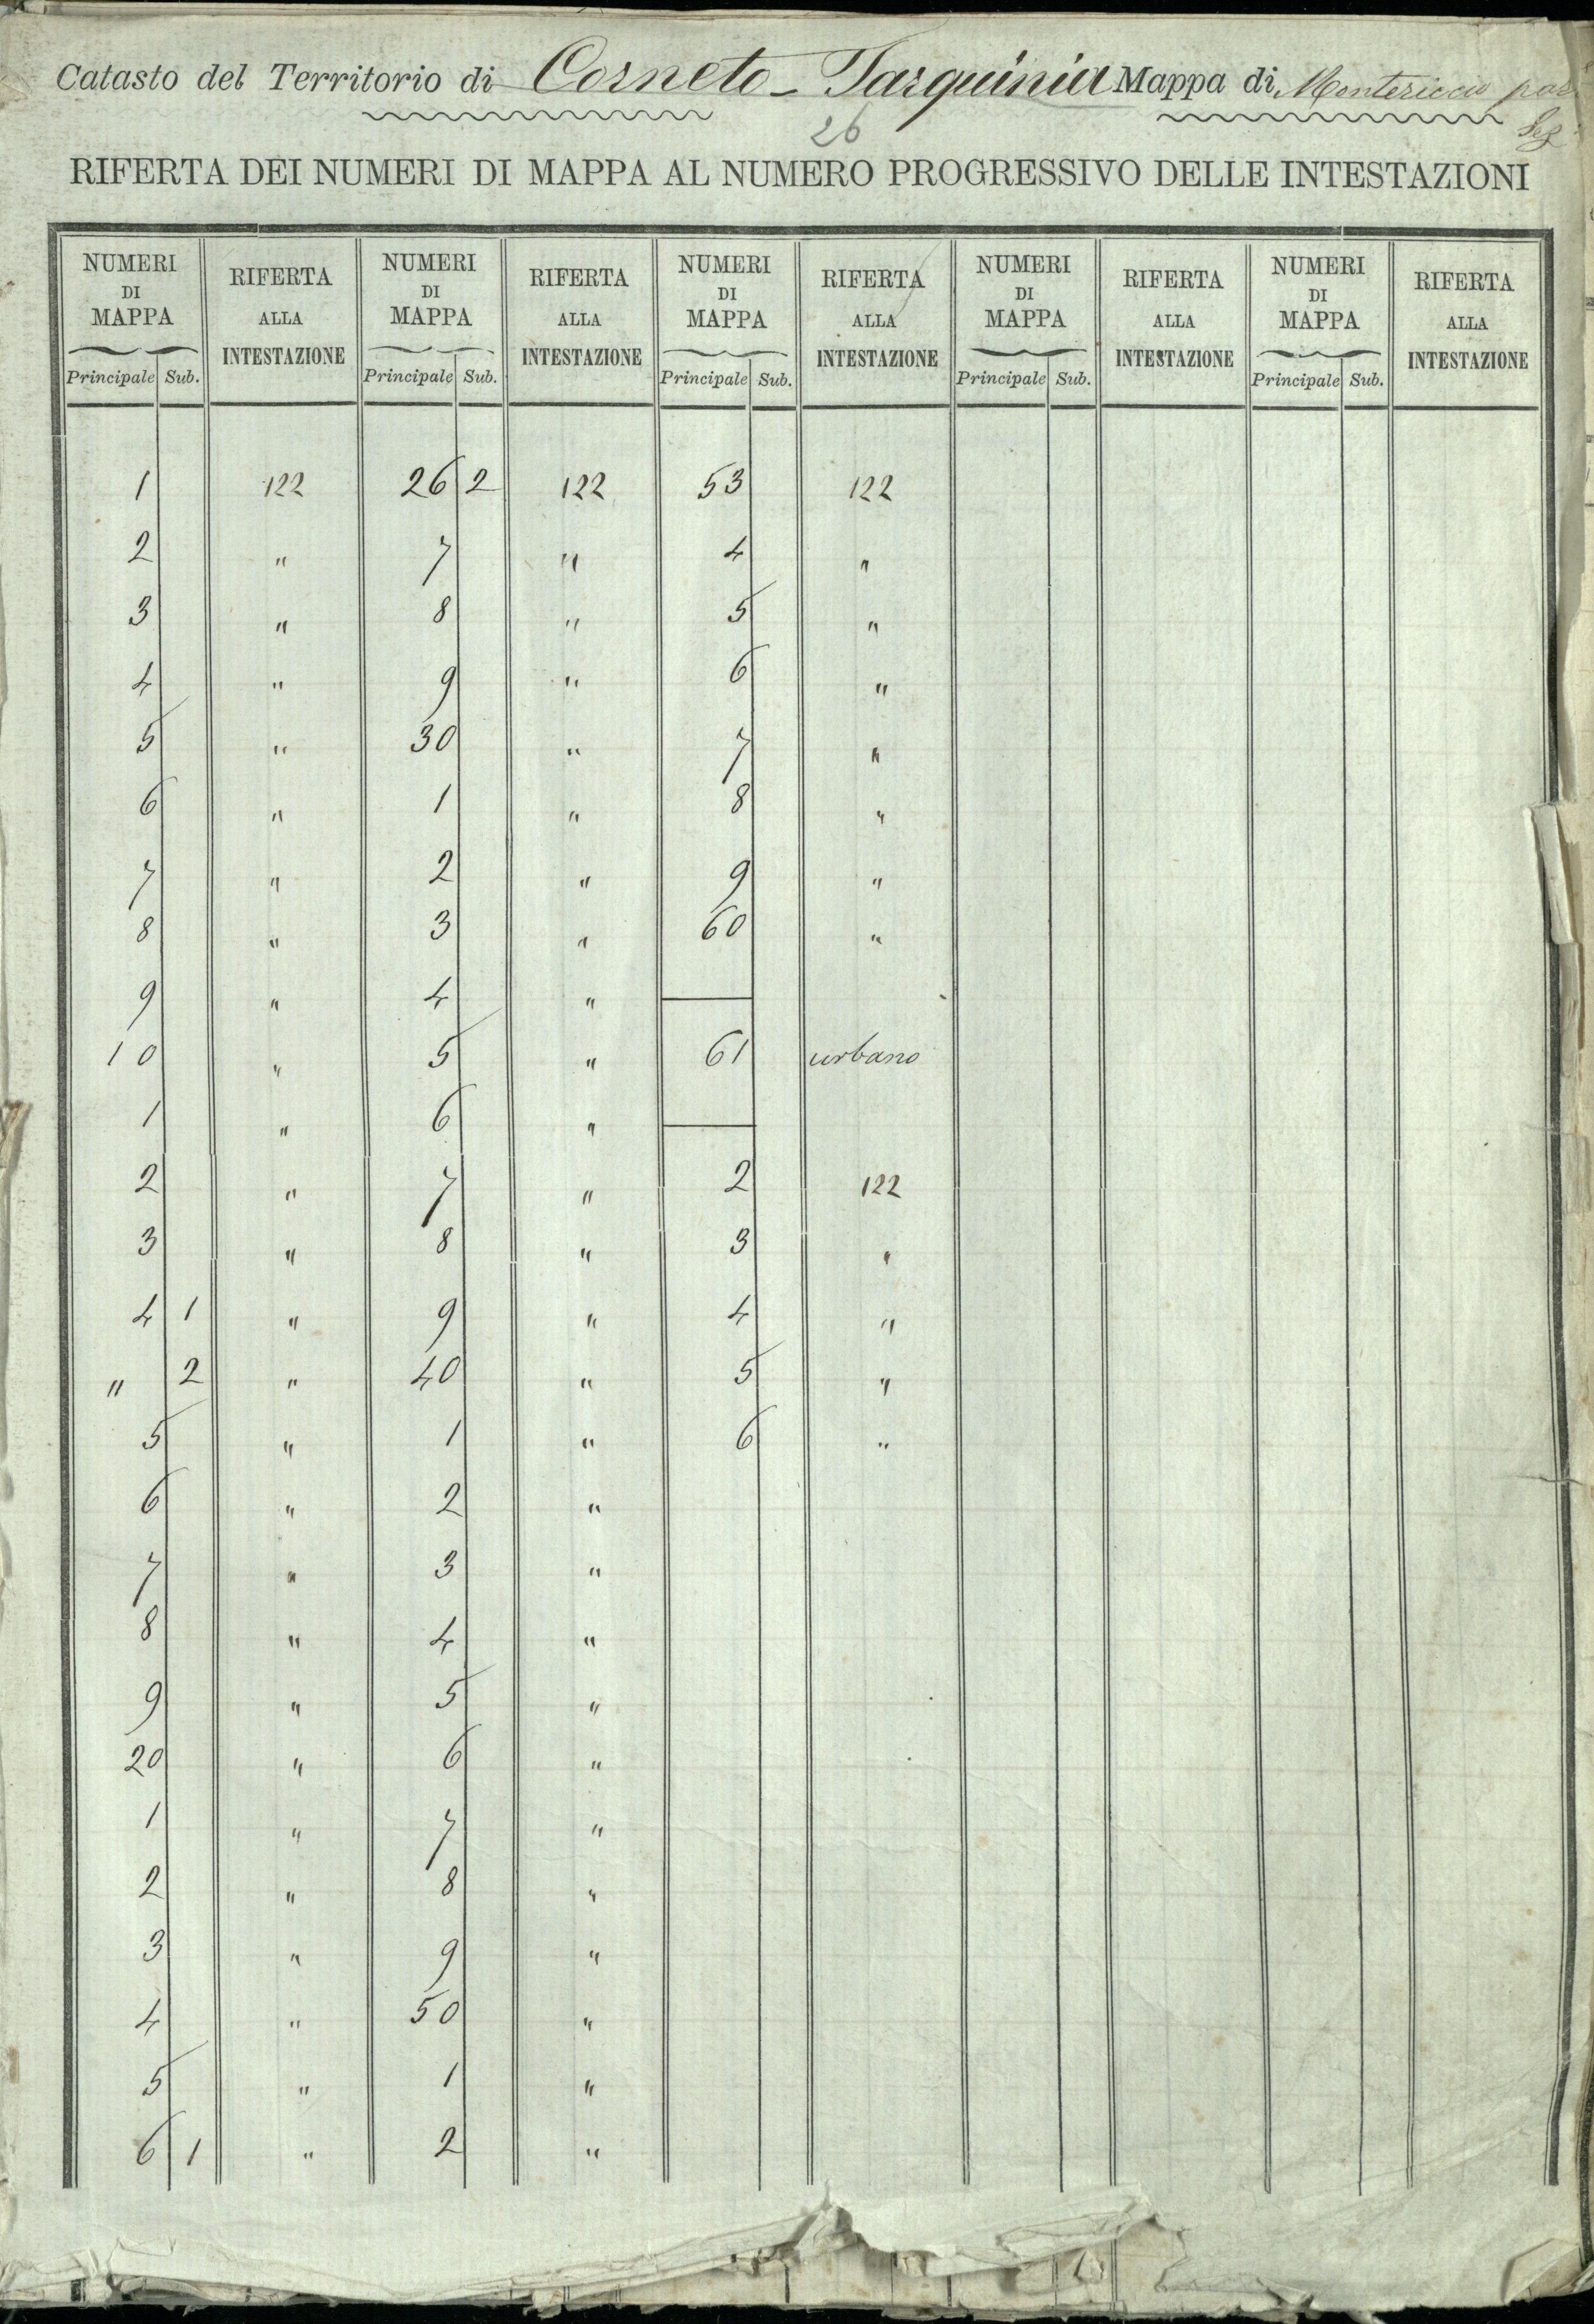 Catasto del Territorio di Corneto - Tarquinia Mappa di Montericcio
26
RIFERTA DEI NUMERI DI MAPPA AL NUMERO PROGRESSIVO DELLE INTESTAZIONI
NUMERI DI MAPPA RIFERTA ALLA INTESTAZIONE NUMERI DI MAPPA RIFERTA ALLA INTESTAZIONE NUMERI DI MAPPA RIFERTA ALLA INTESTAZIONE NUMERI DI MAPPA RIFERTA ALLA INTESTAZIONE NUMERI DI MAPPA RIFERTA ALLA INTESTAZIONE
Principale Sub. Principale Sub. Principale Sub. Principale Sub. Principale Sub.
1 122 26 2 122 53 122
2 " 7 " 4 "
3 " 8 " 5 "
4 " 9 " 6 "
5 " 30 " 7 "
6 " 1 " 8 "
7 " 2 " 9 "
8 " 3 " 60 "
9 " 4 "
10 " 5 " 61 urbano
1 " 6 "
2 " 7 " 2 122
3 " 8 " 3 "
4 1 " 9 " 4 "
" 2 " 40 " 5 "
5 " 1 " 6 "
6 " 2 "
7 " 3 "
8 " 4 "
9 " 5 "
20 " 6 "
1 " 7 "
2 " 8 "
3 " 9 "
4 " 50 "
5 " 1 "
6 1 " 2 "